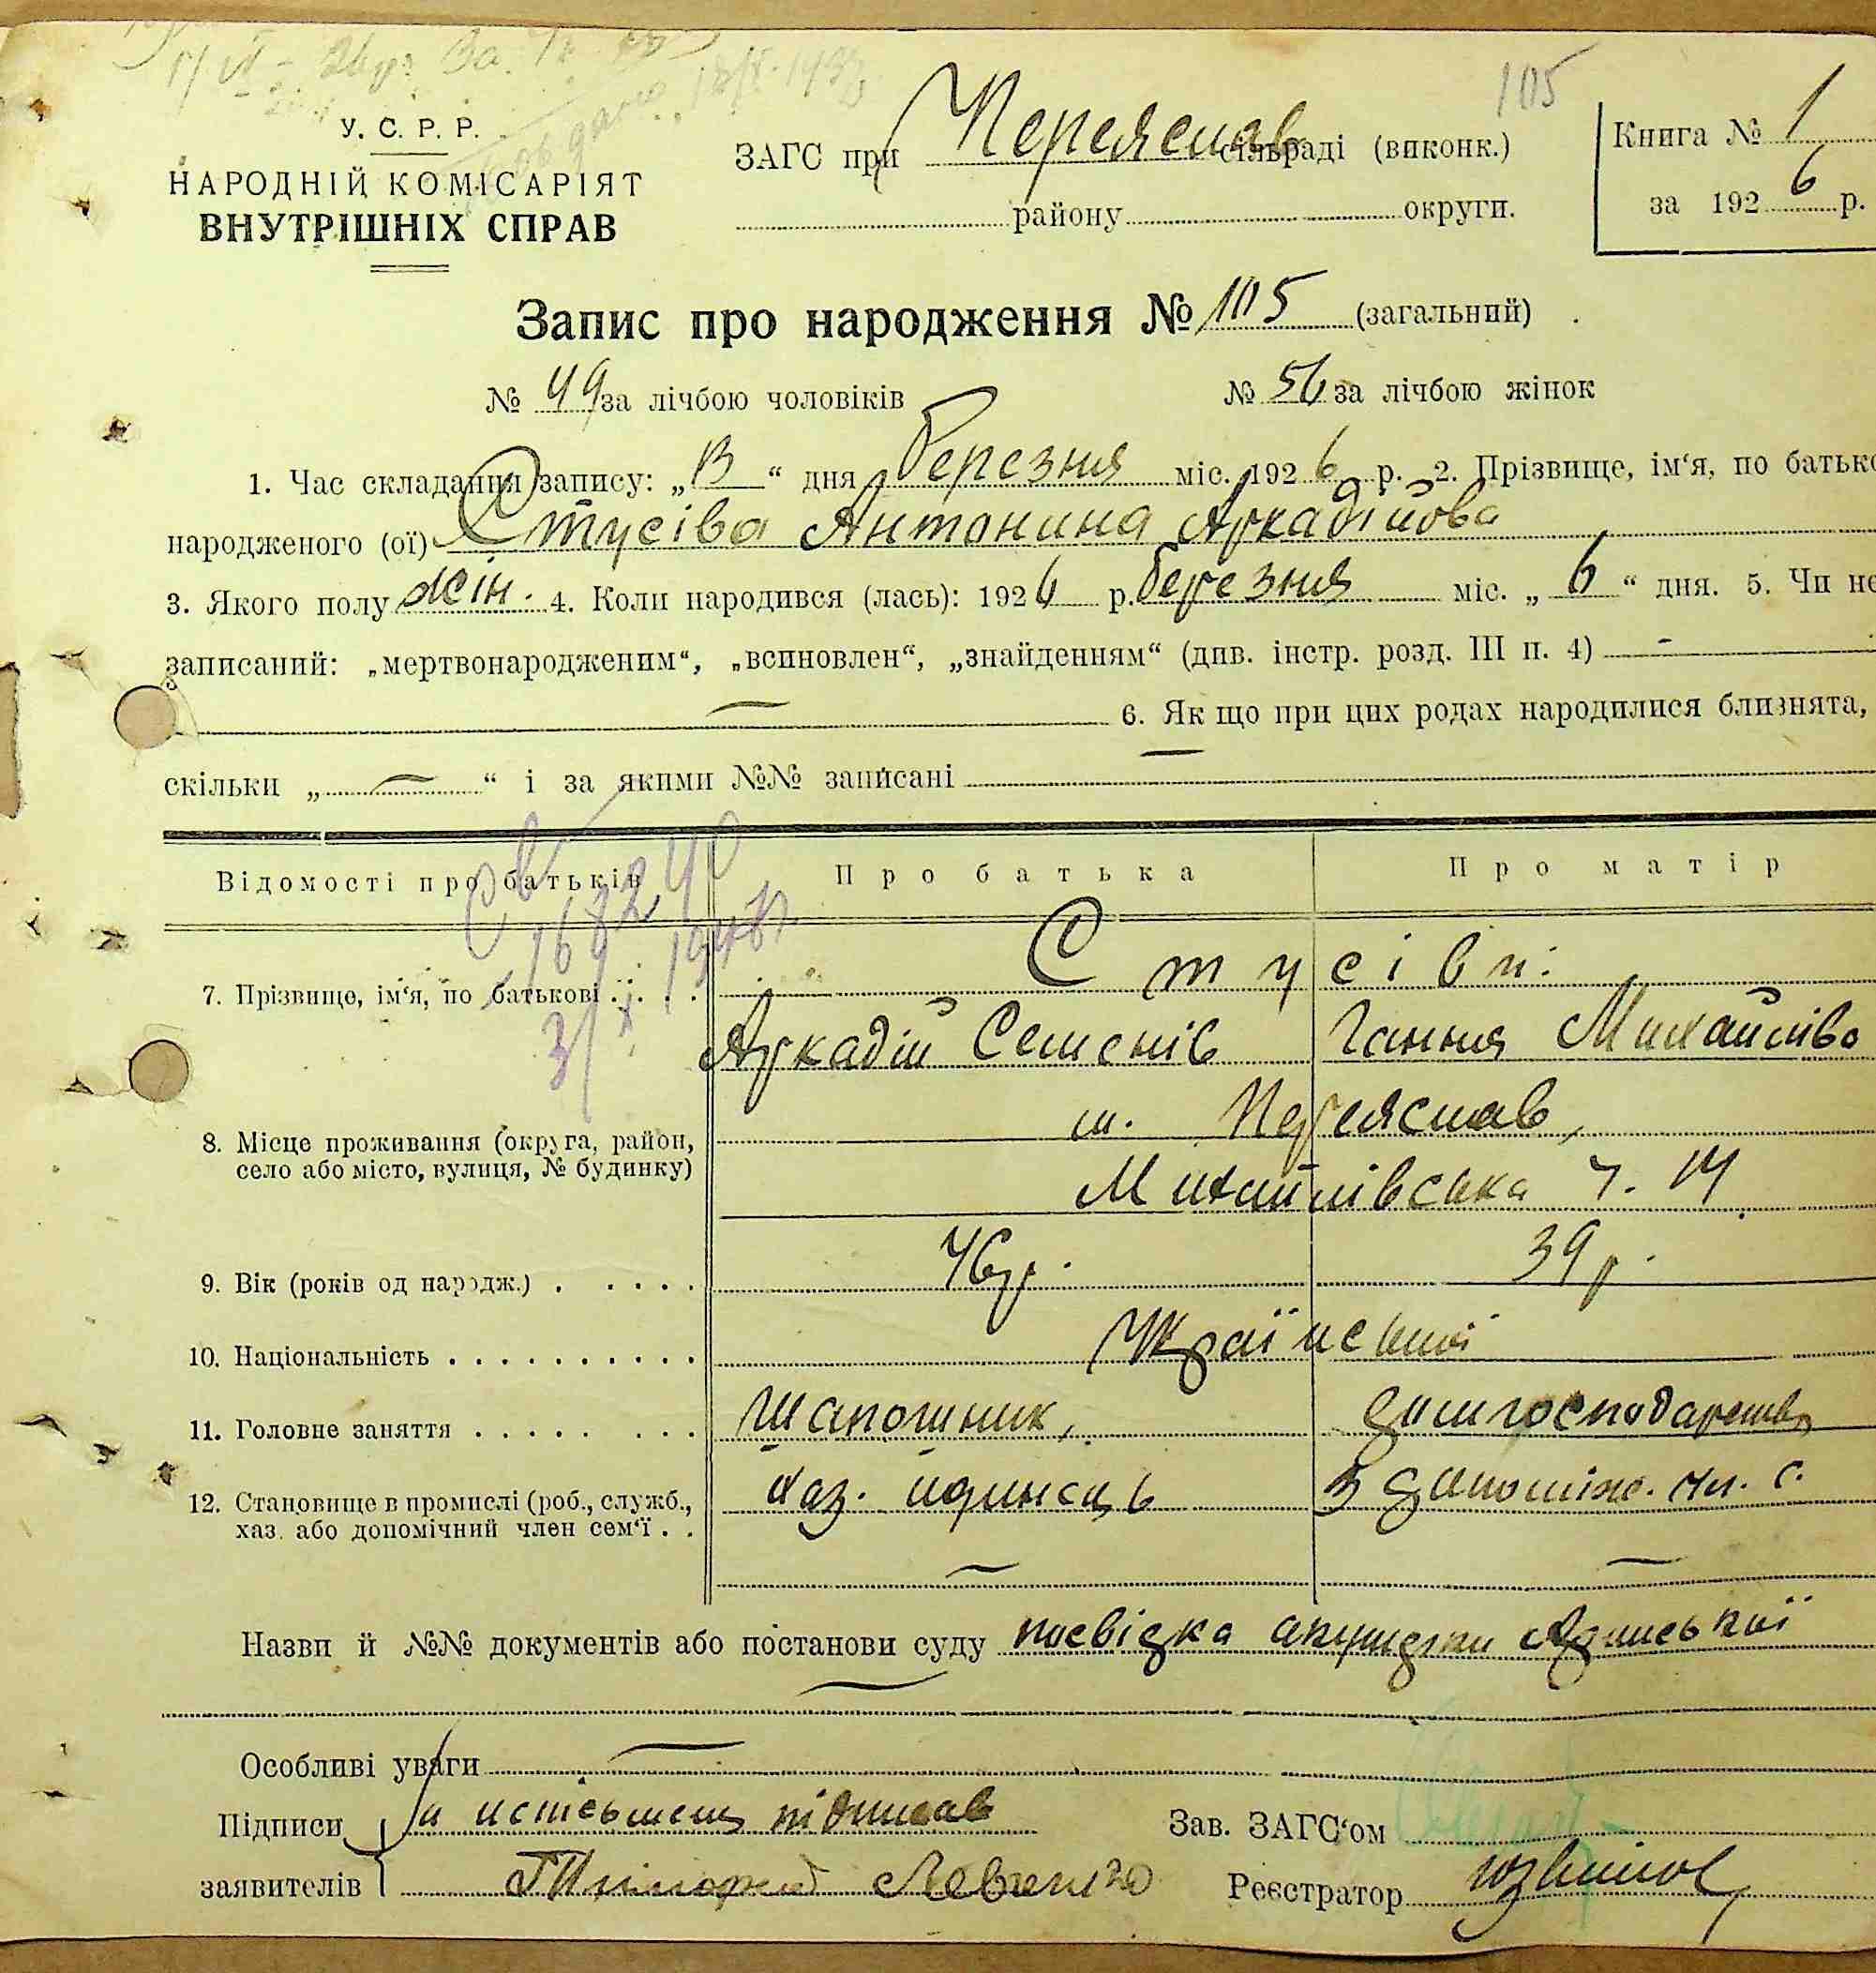 105
У. С. Р. Р.
НАРОДНІЙ КОМІСАРІЯТ
ВНУТРІШНІХ СПРАВ
ЗАГС при Переяслав сільраді (виконк.)
району округи.
Книга № 1
за 1926 р.
Запис про народження № 105 (загальний)
№ 49 за лічбою чоловіків № 56 за лічбою жінок
1. Час складання запису: „13“ дня Березня міс. 1926 р. 2. Прізвище, ім‘я, по батько
народженого (ої) Стусіва Антонина Аркадійова
3. Якого полу жін. 4. Коли народився (лась): 1926 р. березня міс. „6“ дня. 5. Чи не
записаний: „мертвонародженим“, „всиновлен“, „знайденням“ (див. інстр. розд. III п. 4) -
— 6. Як що при цих родах народилися близнята,
скільки „—“ і за якими №№ записані —
Відомості про батьків Про батька Про матір
7. Прізвище, ім‘я, по батькові . . . . Стусіви:
Аркадій Семенів Ганна Михайліва
8. Місце проживання (округа, район,
село або місто, вулиця, № будинку)
м. Переяслав,
Михайлівська ч. 14
9. Вік (років од народж.) . . . . . 46 р. 39 р.
10. Національність . . . . . . . . . . Української
11. Головне заняття . . . . . . . . Шапошник, дом господарство
12. Становище в промислі (роб., служб.,
хаз. або допомічний член сем‘ї . .
хаз. одинець допоміж. чл. с.
— —
Назви й №№ документів або постанови суду посвідка акушерки
—
Особливі уваги —
Підписи підписав
заявителів Левченко
Зав. ЗАГС‘ом
Реєстратор